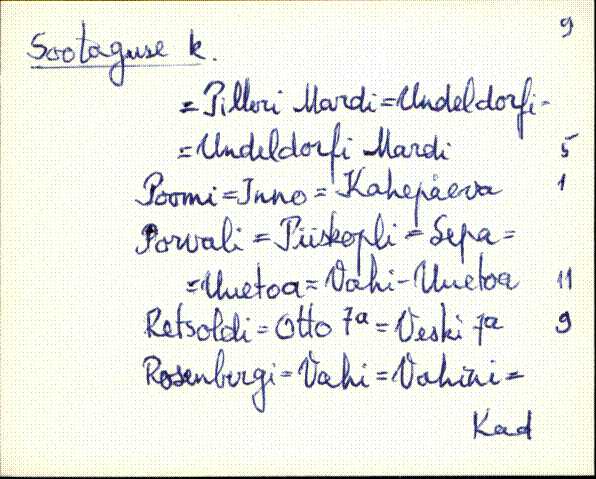 9
Sootaguse k.
= Pilleri Mardi = Undeldorfi -
= Undeldorfi Mardi 5
Poomi = Inno = Kahepäeva 1
Porvali = Piiskopli = Sepa =
= Uuetoa = Vahi - Uuetoa 11
Retsoldi = Otto 7a = Veski 7a 9
Rosenbergi = Vahi = Vahini =
Kad